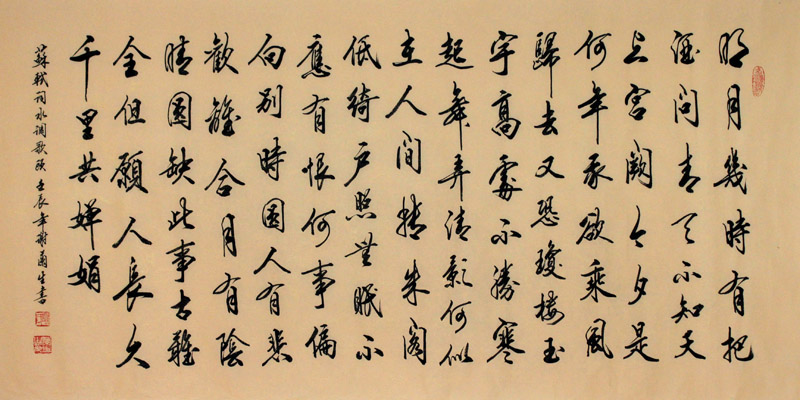 明月幾時有把
酒問青天不知天
上宮闕今夕是
何年我欲乘風
歸去又恐瓊樓玉
宇高處不勝寒
起舞弄清影何似
在人間轉朱閣
低綺户照無眠不
應有恨何事偏
向别時圓人有悲
歡離合月有陰
晴圓缺此事古難
全但願人長久
千里共嬋娟
蘇軾詞水调歌頭壬辰年生書